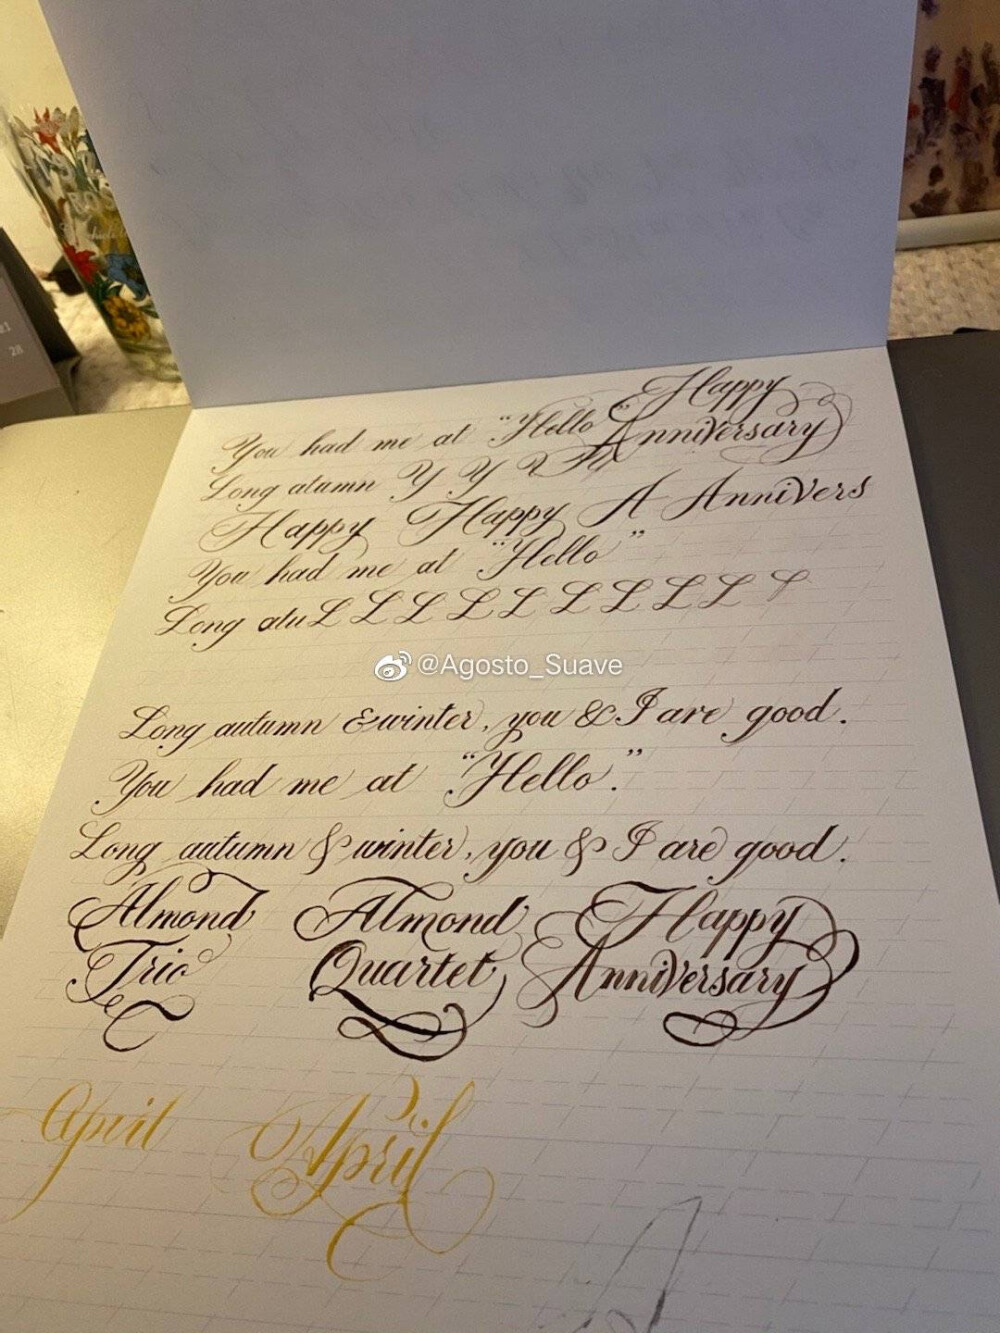 Happy
You had me at "Hello" Anniversary
Long atumn Y Y Y
Happy Happy A Annivers
You had me at "Hello"
Long atu L L L L L L L L L
@Agosto_Suave
Long autumn & winter, you & I are good.
You had me at "Hello."
Long autumn & winter, you & I are good.
Almond Almond Happy
Trio Quartet Anniversary
April April
21
28